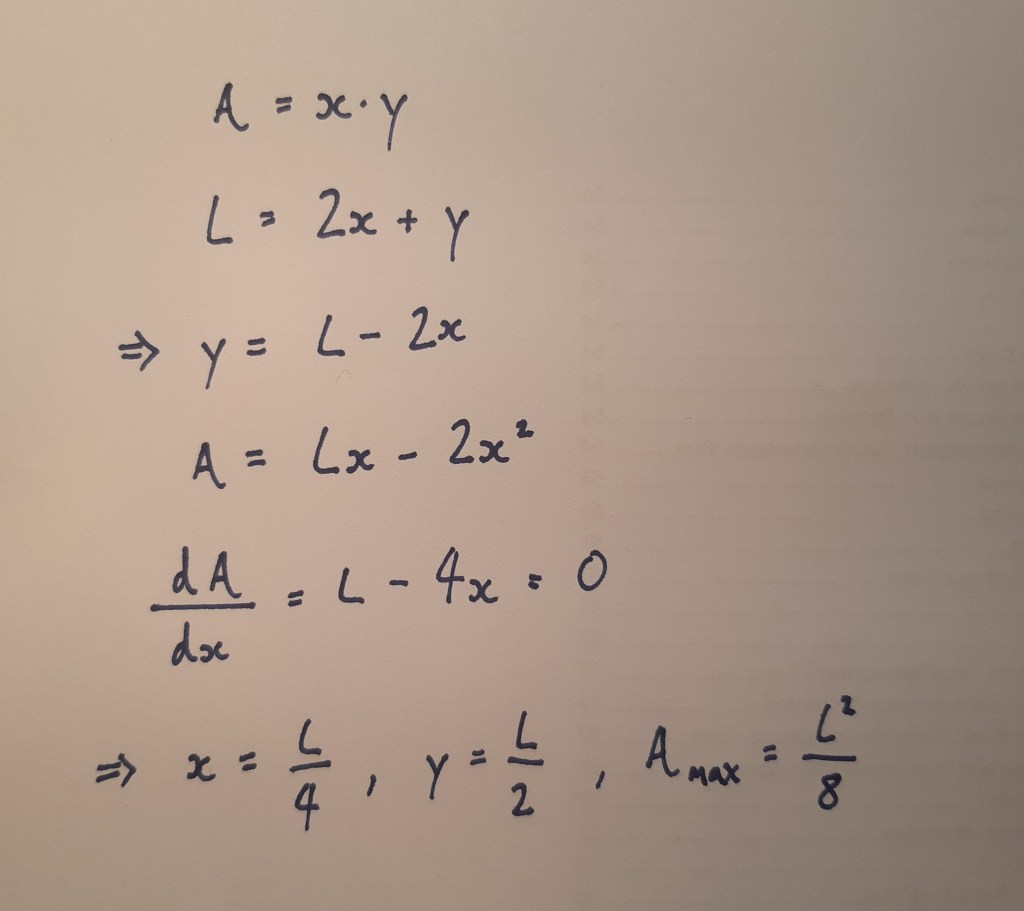 A = x·y
L = 2x + y
⇒ y = L - 2x
A = Lx - 2x²
dA/dx = L - 4x = 0
⇒ x = L/4, y = L/2, A max = L²/8